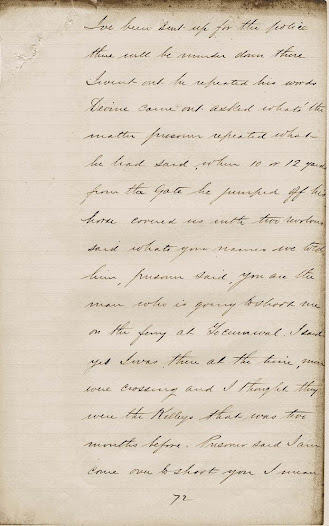 I've been sent up for the police
there will be murder down there
I went out he repeated his words
Devine came out asked what's the
matter prisoner repeated what
he had said, when 10 or 12 yards
from the Gate he jumped off his
horse covered us with two revolvers
said whats your names we told
him, prisoner said, you are the
man who is going to shoot me
on the ferry at Tocumwal. I said
yes I was there at the time, men
were crossing and I thought they
were the Kellys that was two
months before. Prisoner said I am
come over to shoot you I mean
72